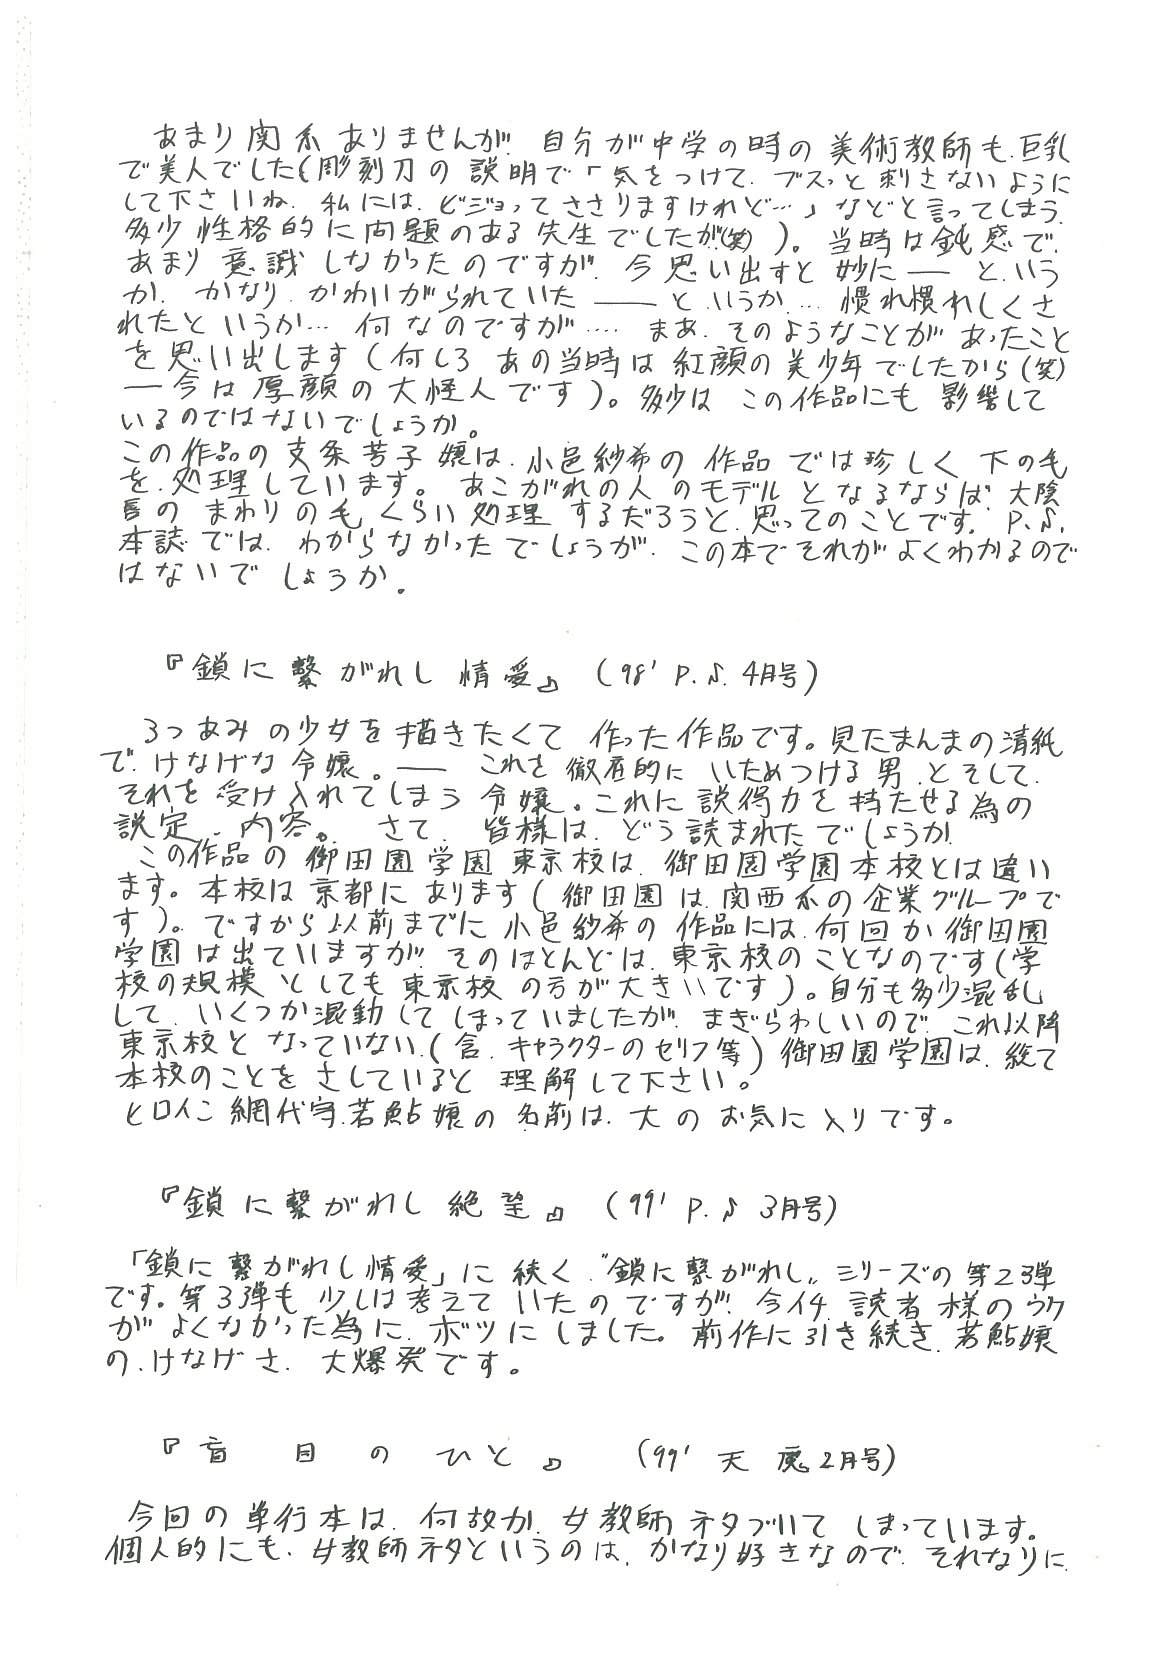 あまり関系ありませんが、自分が中学の時の美術教師も、巨乳
で美人でした(彫刻刀の説明で「気をつけて、ブスっと刺さないように
して下さいね、私には、ビジョってささりますけれど…」などと言ってしまう、
多少性格的に問題のある先生でしたが(笑))。当時は鈍感で、
あまり意識しなかったのですが、今思い出すと妙に――と、いう
か、かなり、かわいがられていた――と、いうか…慣れ慣れしくさ
れたというか…何なのですが…、まあ、そのようなことがあったこと
を思い出します(何しろあの当時は紅顔の美少年でしたから(笑)
―今は厚顔の大怪人です)。多少はこの作品にも影響して
いるのではないでしょうか。
この作品の支条芳子嬢は、小邑紗希の作品では珍しく下の毛
を、処理しています。あこがれの人のモデルとなるならば、大陰
唇のまわりの毛くらい処理するだろうと、思ってのことです。P.S.
本誌では、わからなかったでしょうが、この本でそれがよくわかるので
はないでしょうか。
『鎖に繋がれし情愛』(98' P.S. 4月号)
3つあみの少女を描きたくて作った作品です。見たまんまの清純
で、けなげな令嬢。――これを徹底的にいためつける男、とそして、
それを受け入れてしまう令嬢。これに説得力を持たせる為の
設定、内容。さて、皆様は、どう読まれたでしょうか。
この作品の御田園学園東京校は、御田園学園本校とは違い
ます。本校は京都にあります(御田園は、関西系の企業グループで
す)。ですから以前までに小邑紗希の作品には、何回か御田園
学園は出ていますが、そのほとんどは、東京校のことなのです(学
校の規模としても東京校の方が大きいです)。自分も多少混乱
して、いくつか混動してしまっていましたが、まぎらわしいので、これ以降
東京校となっていない、(含、キャラクターのセリフ等)御田園学園は、総て
本校のことをさしていると理解して下さい。
ヒロイン網代守若鮎嬢の名前は、大のお気に入りです。
『鎖に繋がれし絶望』(99' P.S 3月号)
「鎖に繋がれし情愛」に続く、“鎖に繋がれし〟シリーズの第2弾
です。第3弾も少しは考えていたのですが、今イチ、読者様のウケ
がよくなかった為に、ボツにしました。前作に引き続き、若鮎嬢
の、けなげさ、大爆発です。
『盲目のひと』(99' 天魔2月号)
今回の単行本は、何故か、女教師ネタづいてしまっています。
個人的にも、女教師ネタというのは、かなり好きなので、それなりに、